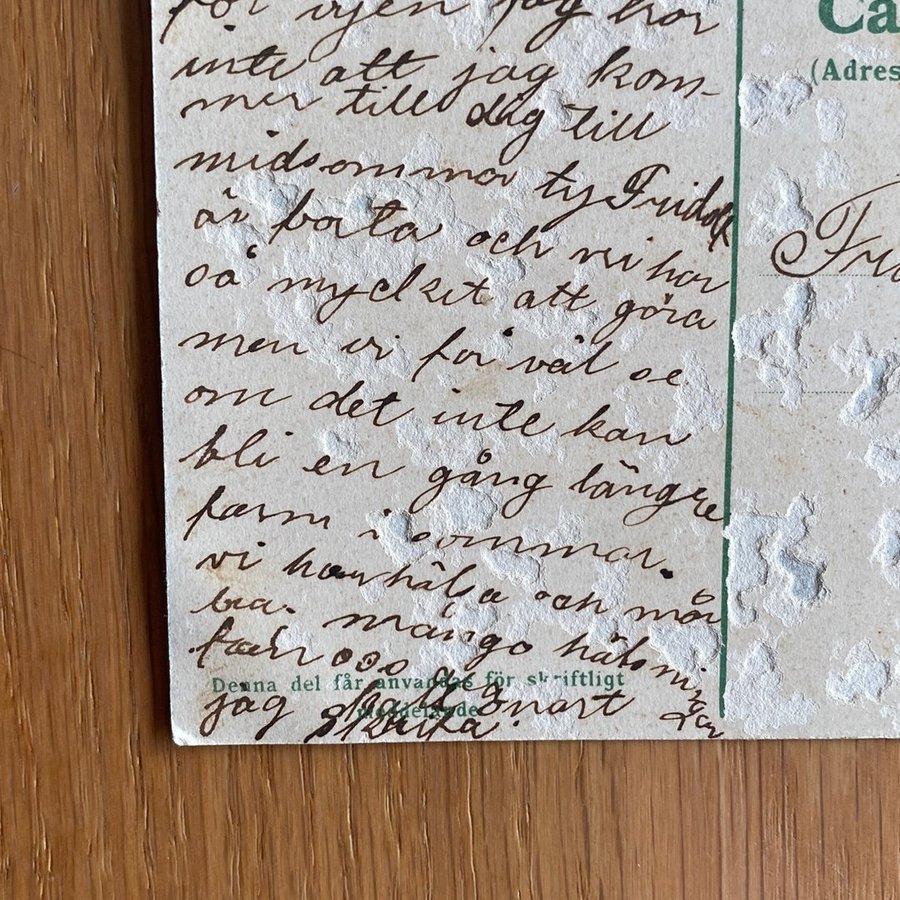 för vyen jag tror
inte att jag kom-
mer till dig till
midsommar ty Fridolf
är borta och vi har
så mycket att göra
men vi får väl se
om det inte kan
bli en gång längre
fram i sommar.
vi har hälsa och mår
bra. många hälsningar
från oss
jag skall snart
skrifva.
Denna del får användas för skriftligt
meddelande.
Ca
(Adres
Fri